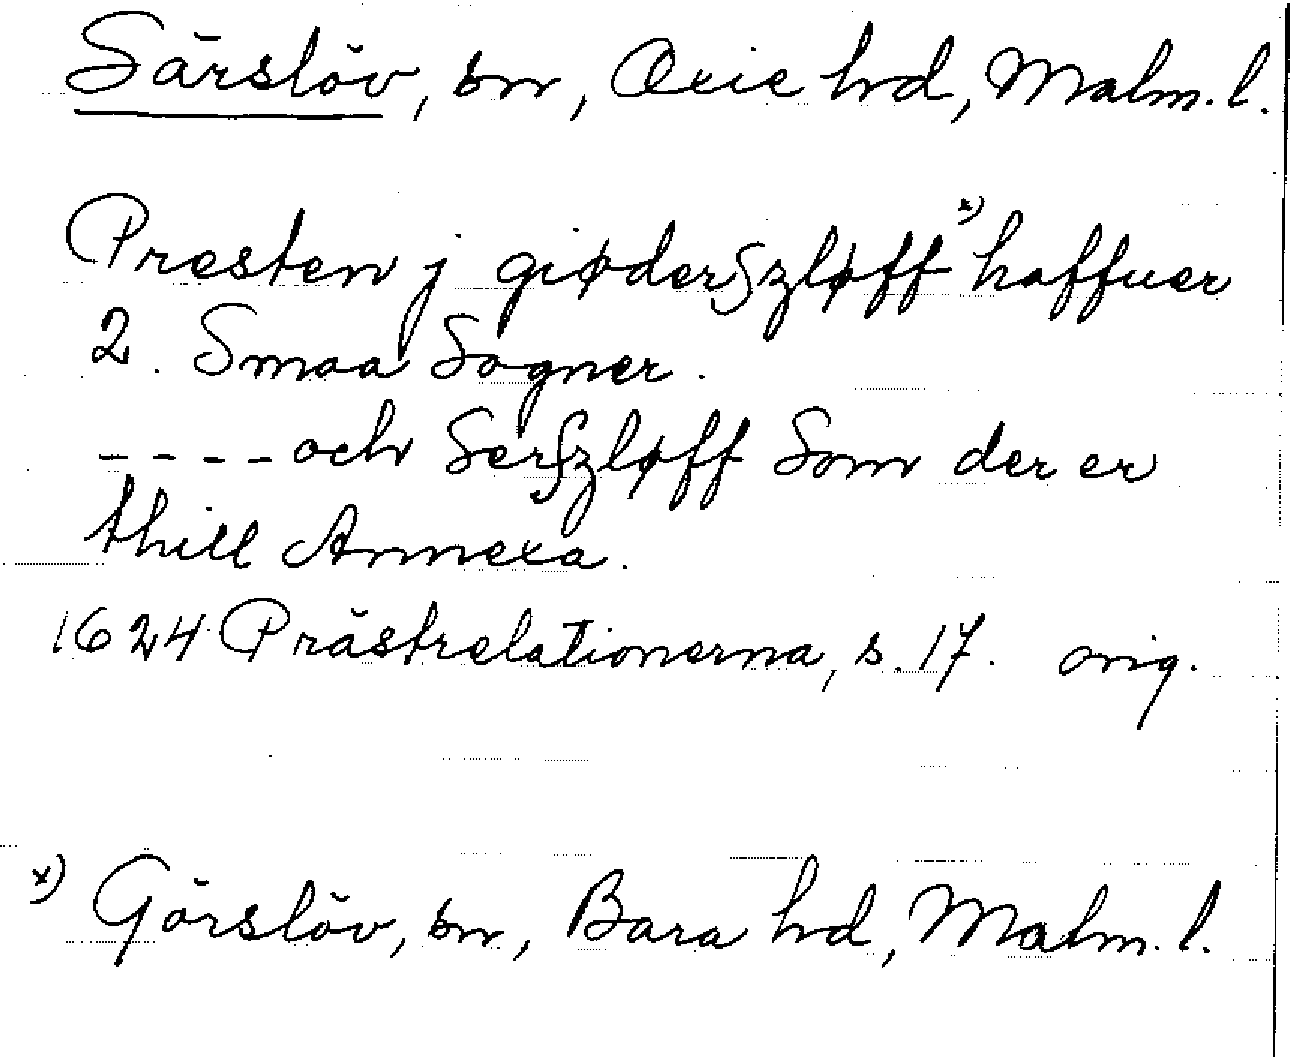 Särslöv, sn, Oxie hd, Malm. l.
Presten j giøderſzløff x) haffuer
2. Smaa Sogner.
---- och Serſzløff Som der er
thill Annexa.
1624 Prästrelationerna, s. 17. orig.
x) Görslöv, sn, Bara hd, Malm. l.